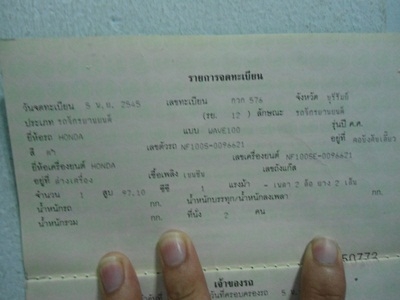 รายการจดทะเบียน
วันจดทะเบียน 5 พ.ย. 2545 เลขทะเบียน กวก 576 จังหวัด บุรีรัมย์
ประเภท รถจักรยานยนต์ (รย. 12 ) ลักษณะ รถจักรยานยนต์
ยี่ห้อรถ HONDA แบบ WAVE100 รุ่นปี ค.ศ.
สี เลขตัวรถ NF100S-0096621 อยู่ที่ คอ
ยี่ห้อเครื่องยนต์ HONDA เลขเครื่องยนต์ NF100SE-0096621
อยู่ที่ อ่างเครื่อง เชื้อเพลิง เบนซิน เลขถังแก๊ส
จำนวน 1 สูบ 97.10 ซีซี 1 แรงม้า - เพลา 2 ล้อ ยาง 2 เส้น
น้ำหนักรถ กก. น้ำหนักบรรทุก/น้ำหนักลงเพลา กก.
น้ำหนักรวม กก. ที่นั่ง 2 คน
50772
เจ้าของรถ
วันที่ครอบครองรถ 5